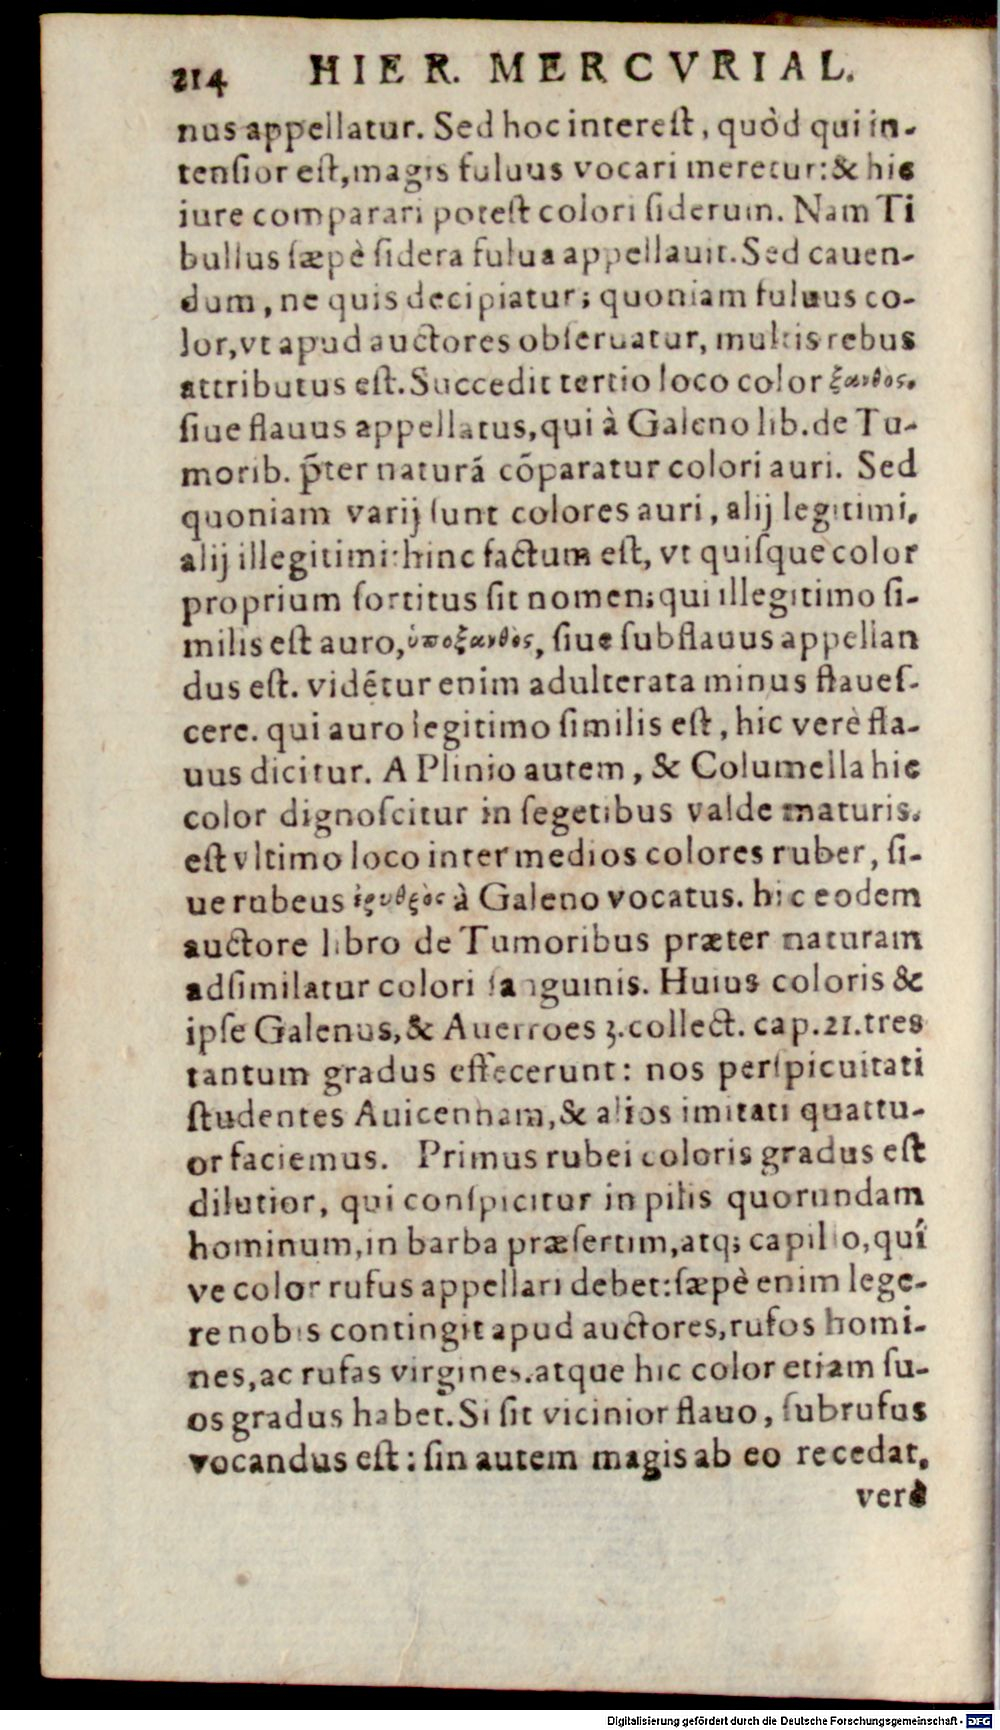 214 HIER. MERCVRIAL.
nus appellatur. Sed hoc interest, quòd qui in-
tensior est, magis fuluus vocari meretur: & hic
iure comparari potest colori siderum. Nam Ti
bullus sæpè sidera fulua appellauit. Sed cauen-
dum, ne quis decipiatur; quoniam fuluus co-
lor, vt apud auctores obseruatur, multis rebus
attributus est. Succedit tertio loco color ξανθος.
siue flauus appellatus, qui à Galeno lib. de Tu-
morib. p̃ter naturã cõparatur colori auri. Sed
quoniam varij sunt colores auri, alij legitimi,
alij illegitimi: hinc factum est, vt quisque color
proprium sortitus sit nomen; qui illegitimo si-
milis est auro, ὑποξανθὸς, siue subflauus appellan
dus est. vidẽtur enim adulterata minus flaues-
cere. qui auro legitimo similis est, hic verè fla-
uus dicitur. A Plinio autem, & Columella hic
color dignoscitur in segetibus valde maturis.
est vltimo loco inter medios colores ruber, si-
ue rubeus ἐρυθρὸς à Galeno vocatus. hic eodem
auctore libro de Tumoribus præter naturam
adsimilatur colori sanguinis. Huius coloris &
ipse Galenus, & Auerroes 3. collect. cap. 21. tres
tantum gradus effecerunt: nos perspicuitati
studentes Auicennam, & alios imitati quattu-
or faciemus. Primus rubei coloris gradus est
dilutior, qui conspicitur in pilis quorundam
hominum, in barba præsertim, atq; capillo, quí
ve color rufus appellari debet: sæpè enim lege-
re nobis contingit apud auctores, rufos homi-
nes, ac rufas virgines. atque hic color etiam su-
os gradus habet. Si sit vicinior flauo, subrufus
vocandus est: sin autem magis ab eo recedat,
verè
Digitalisierung gefördert durch die Deutsche Forschungsgemeinschaft - DFG